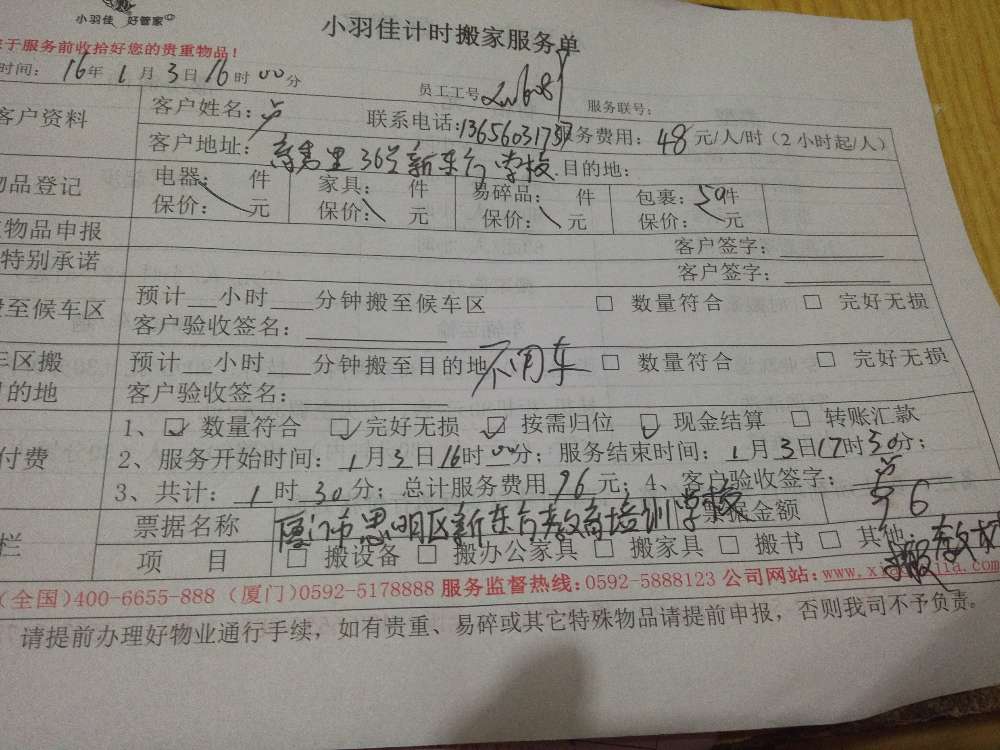 小羽佳 好管家
小羽佳计时搬家服务单
于服务前收拾好您的贵重物品！
时间： 16年 1月 3日 16时 00分 员工工号 服务联号：
客户资料 客户姓名： 联系电话： 服务费用： 48 元/人/时（2小时起/人）
客户地址： 36号新东方学校 目的地：
物品登记 电器： 件 家具： 件 易碎品： 件 包裹： 50件
保价： 元 保价： 元 保价： 元 保价： 元
物品申报 客户签字：
特别承诺 客户签字：
至候车区 预计 小时 分钟搬至候车区 □ 数量符合 □ 完好无损
客户验收签名：
车区搬 预计 小时 分钟搬至目的地 不用车 □ 数量符合 □ 完好无损
目的地 客户验收签名：
付费 1、☑ 数量符合 ☑ 完好无损 ☑ 按需归位 ☑ 现金结算 □ 转账汇款
2、服务开始时间： 1月3日16时00分；服务结束时间： 1月3日17时30分；
3、共计： 1 时 30分；总计服务费用 96 元；4、客户验收签字：
栏 票据名称 厦门市思明区新东方教育培训学校 票据金额 96
项 目 □ 搬设备 □ 搬办公家具 □ 搬家具 □ 搬书 □ 其他 搬教材
(全国)400-6655-888 (厦门)0592-5178888 服务监督热线:0592-5888123 公司网站:
请提前办理好物业通行手续，如有贵重、易碎或其它特殊物品请提前申报，否则我司不予负责。